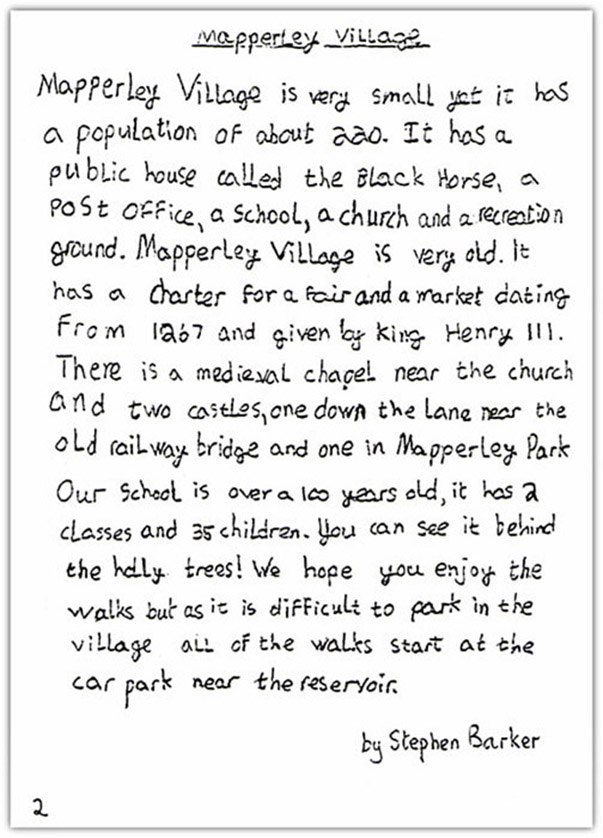 Mapperley Village
Mapperley Village is very small yet it has
a population of about 220. It has a
public house called the Black Horse, a
Post Office, a school, a church and a recreation
ground. Mapperley Village is very old. It
has a charter for a fair and a market dating
from 1267 and given by king Henry III.
There is a medieval chapel near the church
and two castles, one down the lane near the
old railway bridge and one in Mapperley Park
Our school is over a 100 years old, it has 2
classes and 35 children. You can see it behind
the holly trees! We hope you enjoy the
walks but as it is difficult to park in the
village all of the walks start at the
car park near the reservoir.
by Stephen Barker
2